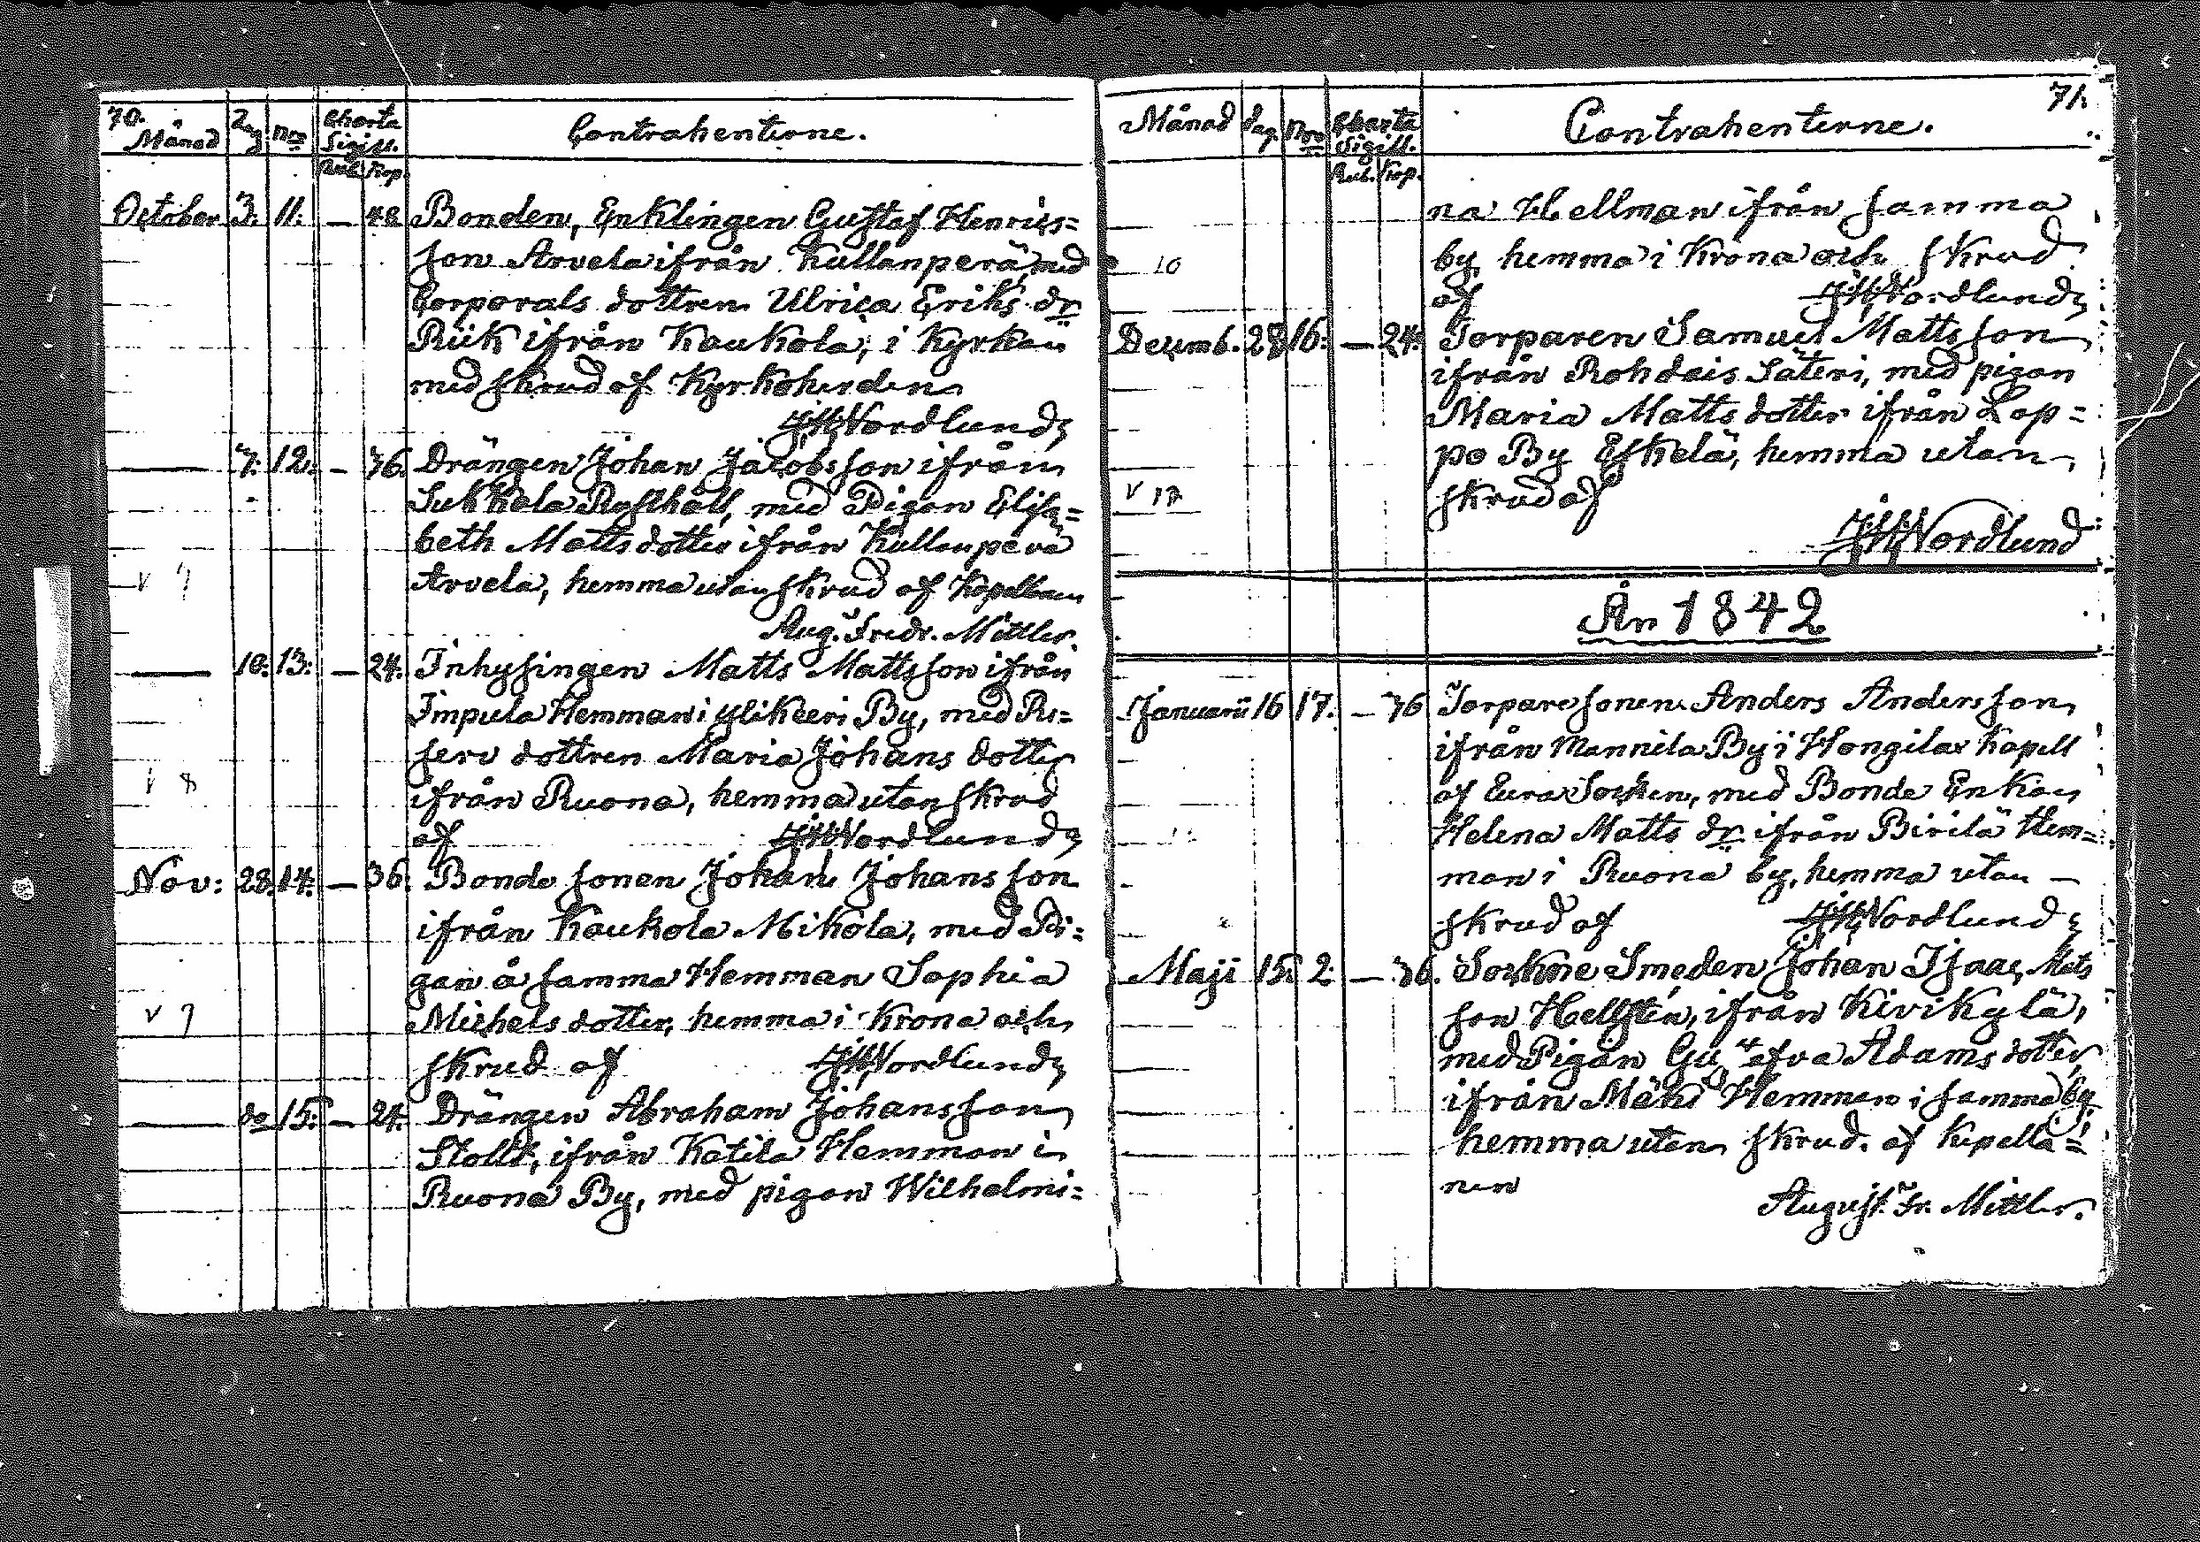 70.
Månad Dag Nro Charta Sigill. Contrahenterne.
Rub. Kop.
October 3. 11. — 48 Bonden, Enklingen Gustaf Henrics=
son Arvela ifrån Kullanperä med
Corporals dottren Ulrica Eriks dr
Riik ifrån Kaukola, i Kyrkan
med skrud af Kyrkoherden
Nordlund
— 7. 12. — 36. Drängen Johan Jacobsson ifrån
Sukkola Rusthåll, med Pigan Elisa=
beth Mattsdotter ifrån Kullanperä
Arvela, hemma utan skrud af Kapellanen
Aug. Fredr. Mittler.
— 10. 13. — 24. Inhysingen Matts Mattsson ifrån
Impula Hemman i Ylikeeri By, med Re=
serv dottren Maria Johans dotter
v 8 ifrån Ruona, hemma utan skrud
af Nordlund
Nov: 28. 14. — 36. Bonde sonen Johan Johansson
ifrån Kaukola Mikola, med Pi=
gan å samma Hemman Sophia
v 9 Michelsdotter, hemma i Krona och
skrud af Nordlund
— do 15. — 24. Drängen Abraham Johansson
Stolt, ifrån Katila Hemman i
Ruona By, med pigan Wilhelmi=
71.
Månad dag. Nro Charta Sigill. Contrahenterne.
Rub. Kop.
na Hellman ifrån samma
10 by hemma i Krona och skrud
af Nordlund
Decemb. 28 16. — 24. Torparen Samuel Mattsson
ifrån Rohdais Säteri, med pigan
Maria Mattsdotter ifrån Lap=
po By Eskelä, hemma utan
skrud af
Nordlund
År 1842
Januarii 16 17. — 36 Torpare sonen Anders Andersson
ifrån Mannila By i Hongilax Kapell
af Eura Socken, med Bonde Enkan
Helena Matts dr ifrån Birilä Hem=
man i Ruona by, hemma utan —
skrud af Nordlund
Maji 15. 2. — 36. Sockne Smeden Johan Isaac Mats
son Hellstén, ifrån Kivikylä,
med Pigan Gustafva Adamsdotter
ifrån Mäki Hemman i samma by
hemma utan skrud. af Kapella=
nen
August. Fr. Mittler.